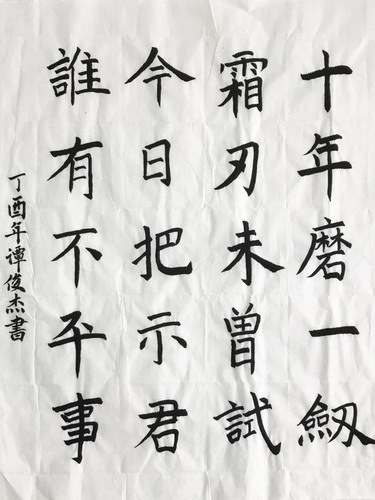 十年磨一劔
霜刃未曽試
今日把示君
誰有不平事
丁酉年谭俊杰書